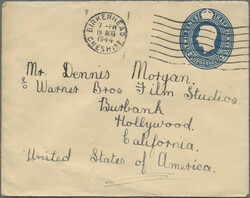 BIRKENHEAD
CHESHIRE
7 - PM
19 AUG
1944
Mr. Dennis Morgan.
c/o Warner Bros Film Studios.
Burbank
Hollywood.
California.
United States of America.